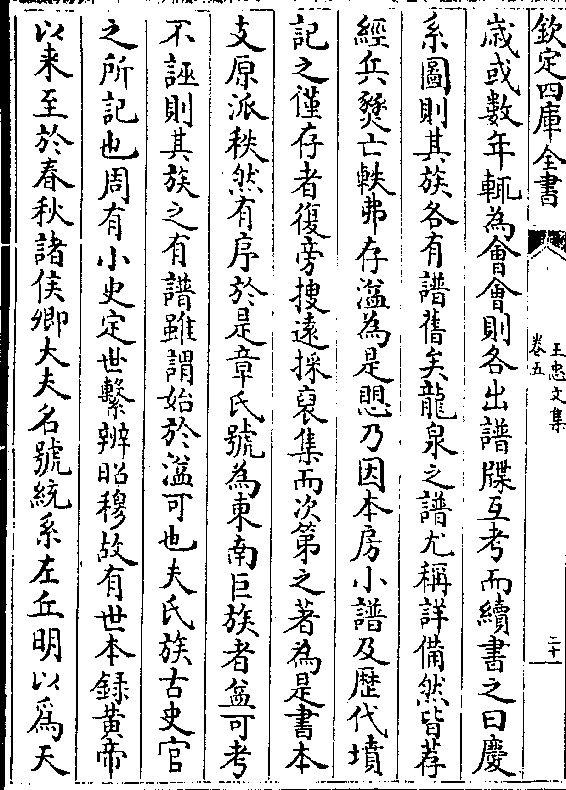 欽定四庫全書
王忠文集
卷五
二十
歳或數年輒為會會則各出譜牒互考而續書之曰慶
系圖則其族各有譜舊矣龍泉之譜尤稱詳備然皆荐
經兵燹亡軼弗存溢為是愳乃因本房小譜及歴代墳
記之僅存者復旁搜逺採裒集而次第之著為是書本
支原派秩然有序於是章氏號為東南巨族者益可考
不誣則其族之有譜雖謂始於溢可也夫氏族古史官
之所記也周有小史定世繫辨昭穆故有世本録黄帝
以来至於春秋諸侯卿大夫名號統系左丘明以爲天